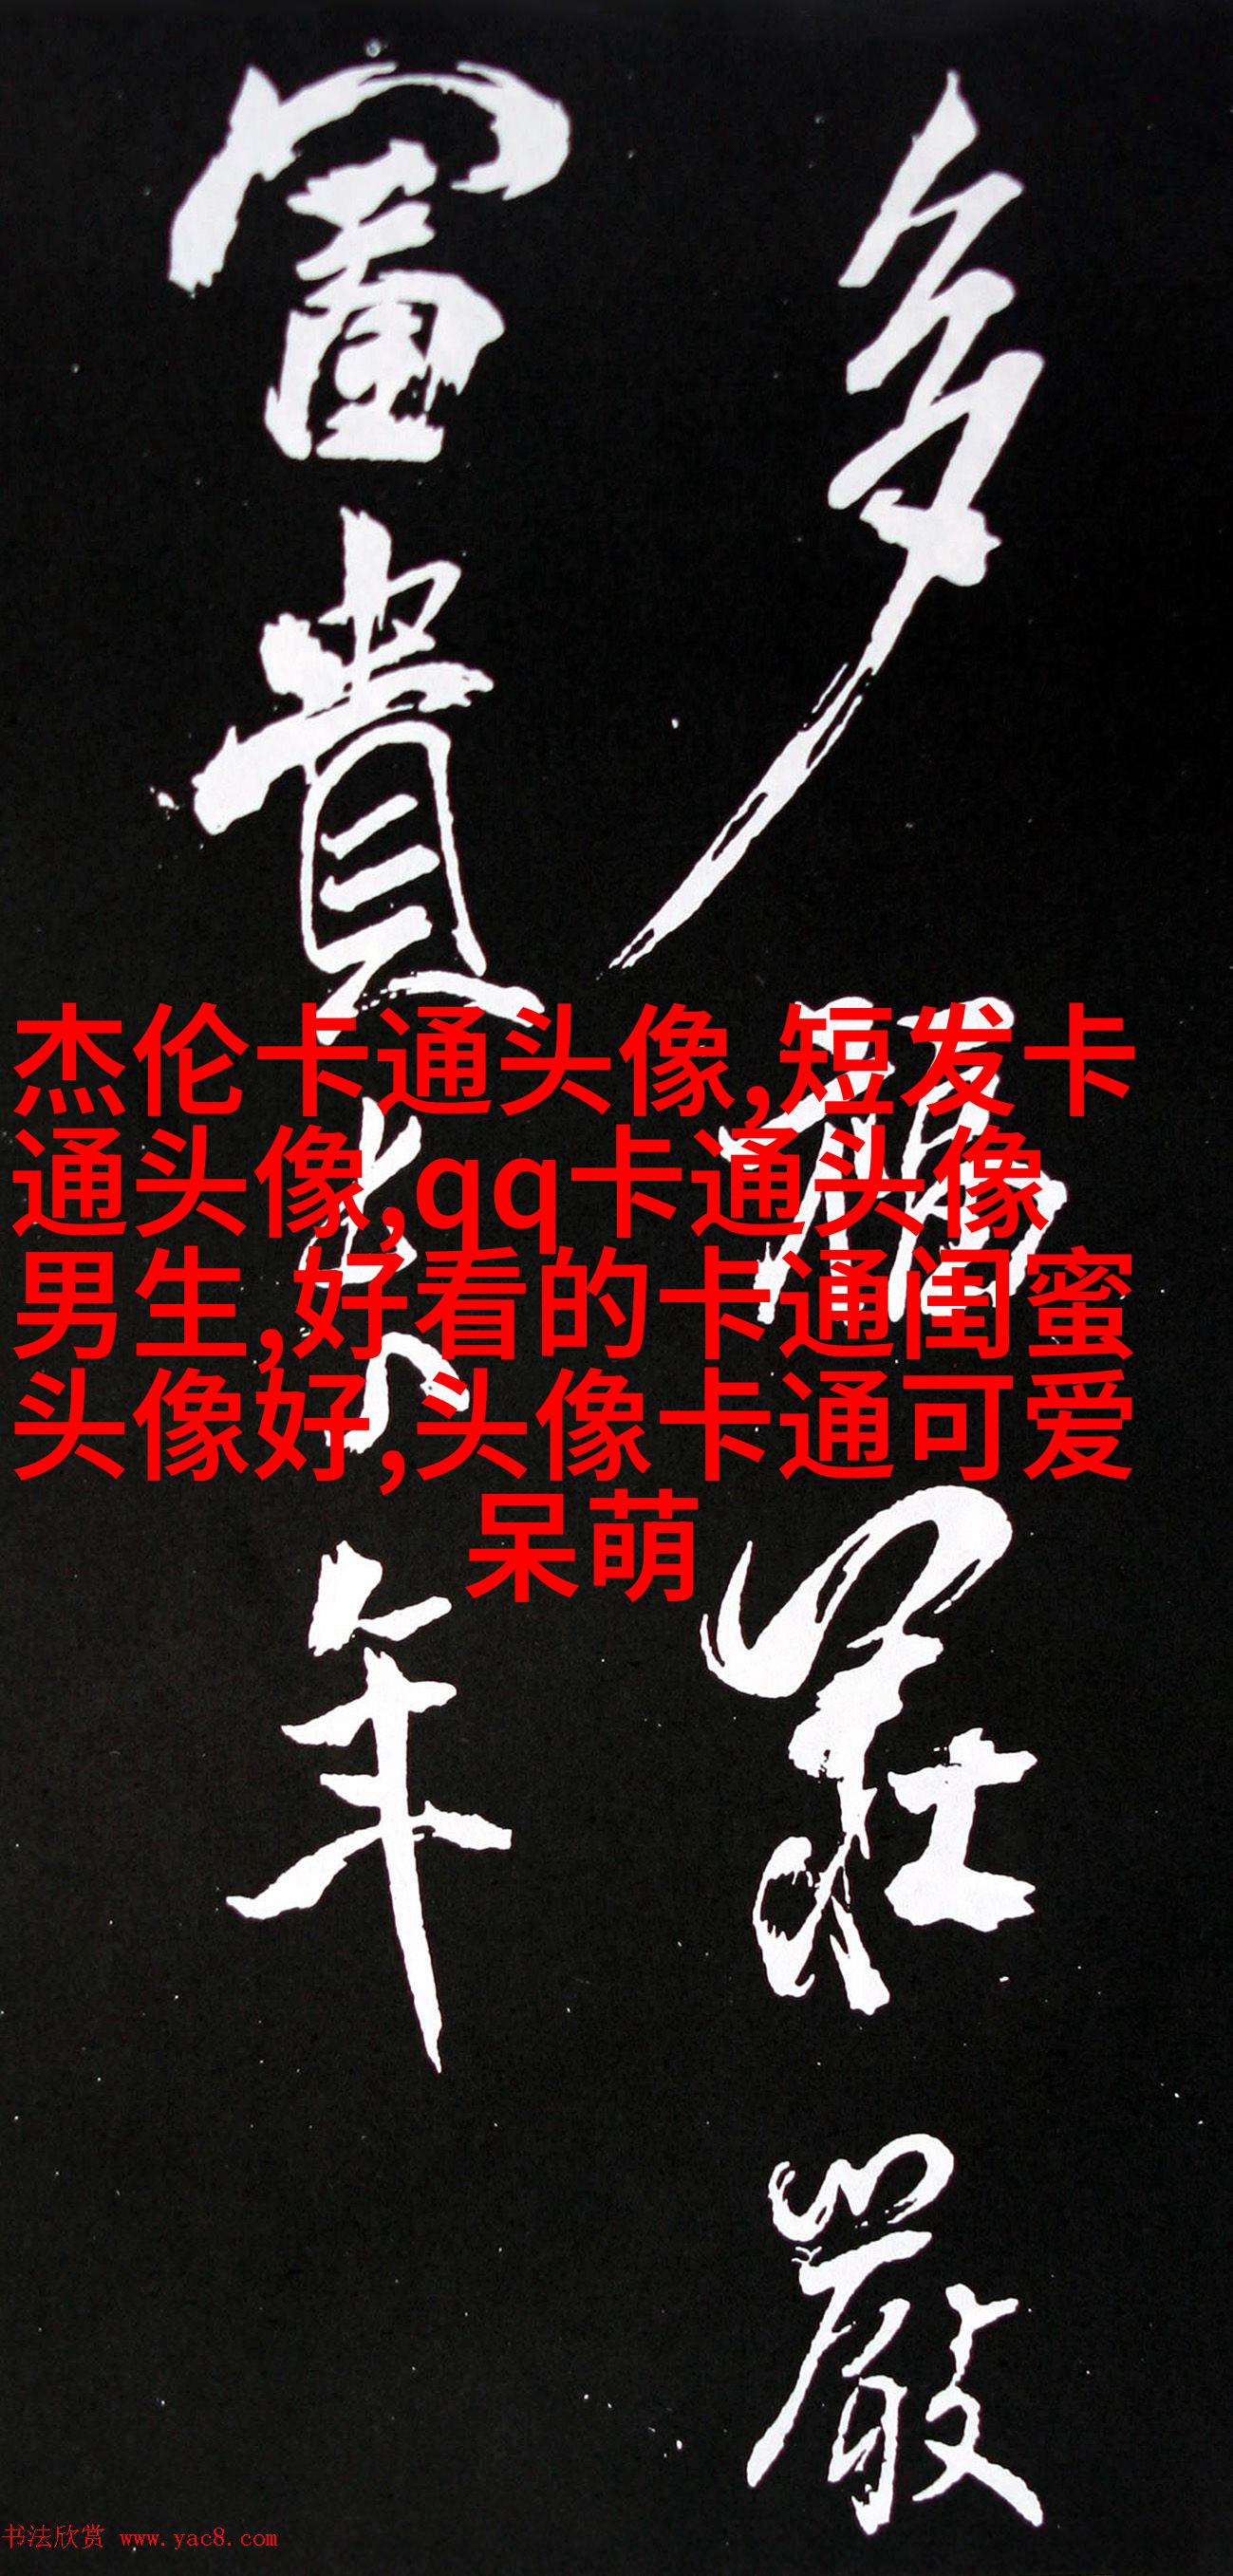 多福莊嚴
富貴長年
杰伦卡通头像,短发卡
通头像,qq卡通头像
男生,好看的卡通闺蜜
头像好,头像卡通可爱
呆萌
书法欣赏 www.yac8.com